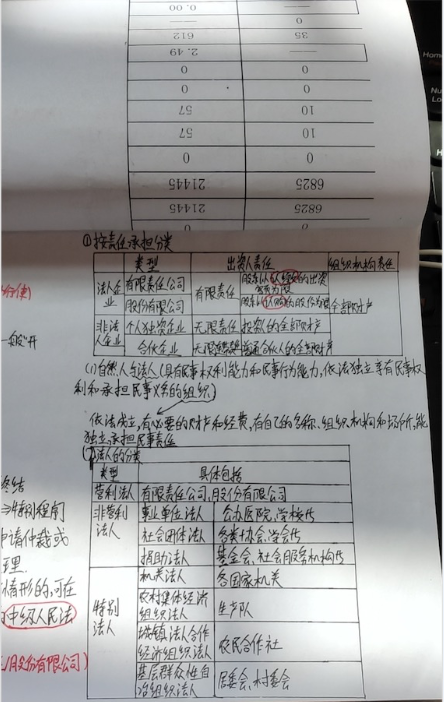 0.00
—
612
35
2.49
—
0
0
0
0
57
10
57
10
0
0
21445
6825
21445
6825
①按责任承担分类
类型 出资人责任 组织机构责任
法人企业 有限责任公司 有限责任 股东以认缴的出资额为限 全部财产
股份有限公司 股东以认购的股份为限
非法人企业 个人独资企业 无限责任 投资人的全部财产
合伙企业 无限连带 普通合伙人的全部财产
(1)自然人与法人(具有民事权利能力和民事行为能力,依法独立享有民事权
利和承担民事义务的组织)
依法成立,有必要的财产和经费,有自己的名称、组织机构和场所,能
独立承担民事责任
法人的分类
类型 具体包括
营利法人 有限责任公司,股份有限公司
非营利法人 事业单位法人 公办医院,学校等
社会团体法人 各类协会,学会等
捐助法人 基金会,社会服务机构等
特别法人 机关法人 各国家机关
农村集体经济组织法人 生产队
城镇农村合作经济组织法人 农民合作社
基层群众性自治组织法人 居委会,村委会
终结
特别程序
申请仲裁或
情形的,可在
中级人民法
股份有限公司)